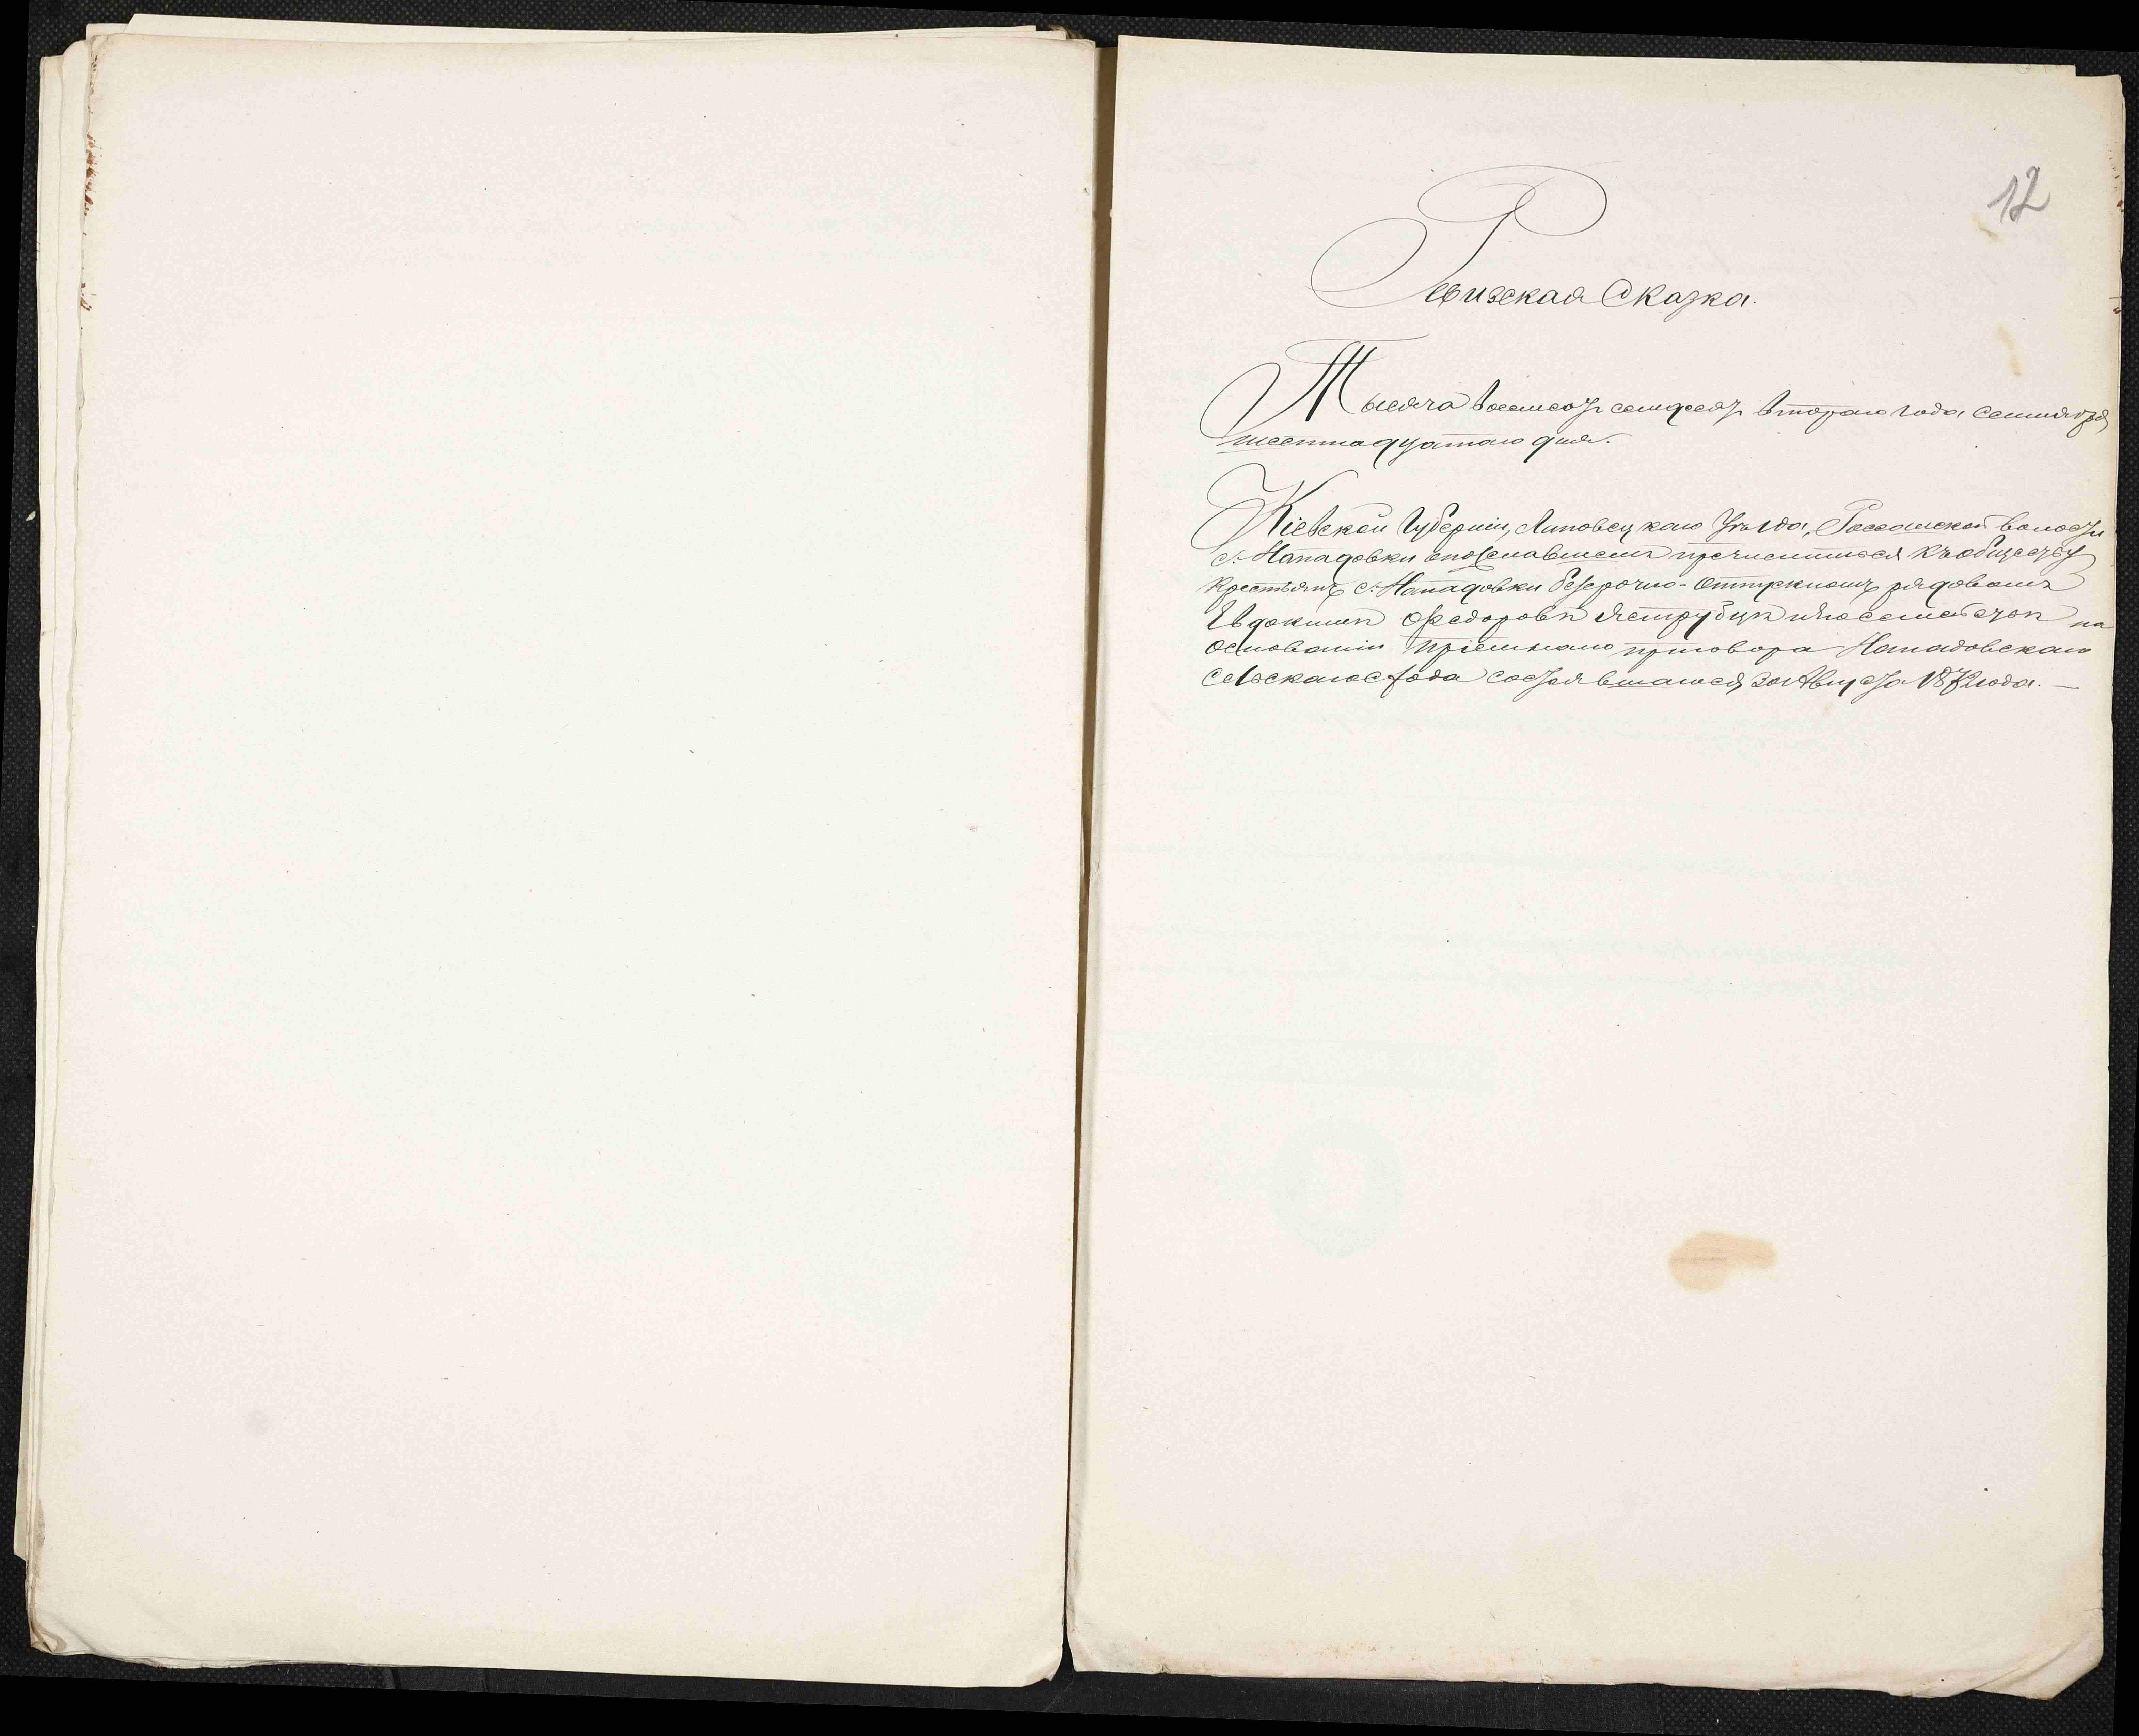 12
Ревизская Сказка.
Тысяча восемсотъ семдесятъ втораго года Сентября
шестнадцатаго дня.
Кіевской Губерніи, Липовецкаго Уѣзда, Россошской волости
с. Нападовки о причислившемся къ обществу
Крестьянъ с. Нападовки безсрочно-отпускномъ рядовомъ
Евдокимѣ Федоровѣ Яструбцѣ и его семействѣ на
основаніи пріемнаго приговора Нападовскаго
Сельскаго схода состоявшагося 30 Августа 1872 года. —